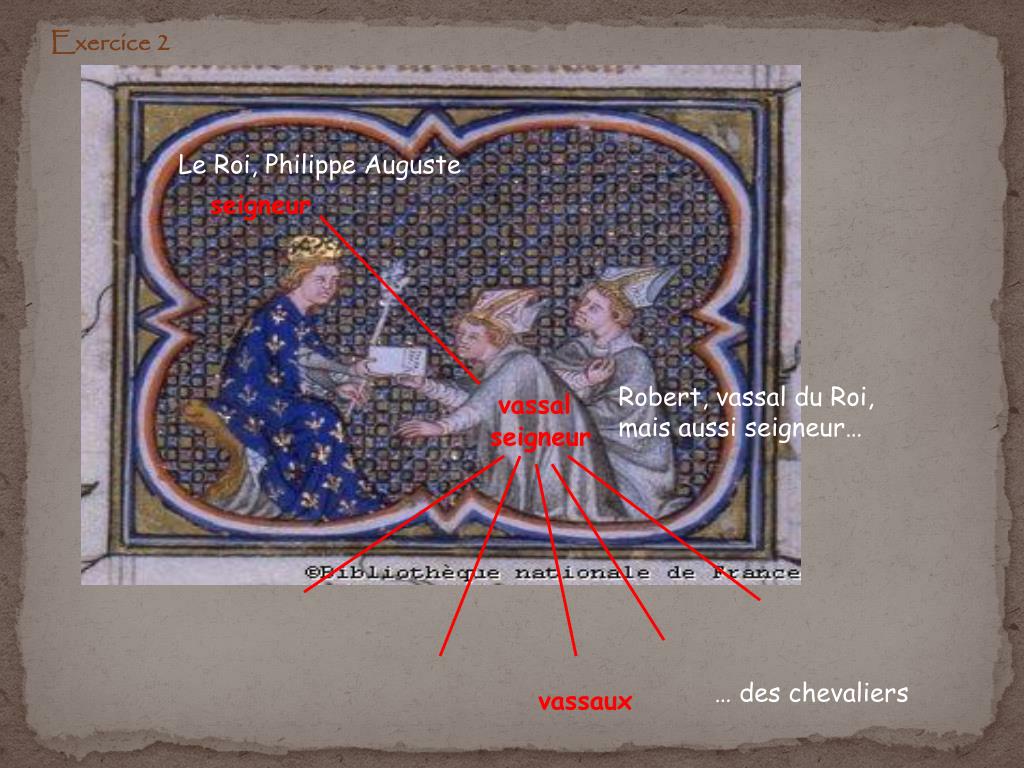 Exercice 2
Le Roi, Philippe Auguste
seigneur
vassal
seigneur
Robert, vassal du Roi,
mais aussi seigneur…
©Bibliothèque nationale de France
vassaux
… des chevaliers